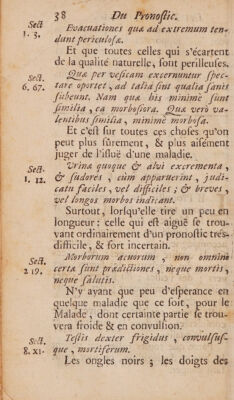 38 Du Pronostic.
Sect. 1. 3.
Evacuationes quæ ad extremum ten-
dunt periculosæ.
Et que toutes celles qui s'écartent
de la qualité naturelle, sont perilleuses.
Sect. 6. 67.
Quæ per vesicam excernuntur spec-
tare oportet, ad talia sint qualia sanis
fiebent. Nam quæ his minimè sunt
similia, ea morbosiora. Quæ verò va-
lentibus similia, minimè morbosa.
Et c'est sur toutes ces choses qu'on
peut plus sûrement, & plus aisément
juger de l'issuë d'une maladie.
Sect. 1. 12.
Urina quoque & alvi excrementa,
& sudores, cùm apparuerint, judi-
catu faciles, vel difficiles; & breves,
vel longos morbos indicant.
Surtout, lorsqu'elle tire un peu en
longueur: celle qui est aiguë se trou-
vant ordinairement d'un pronostic tres-
difficile, & fort incertain.
Sect. 2 19.
Morborum acuorum, non omninò
certa sunt prædictiones, neque mortis,
neque salutis.
N'y ayant que peu d'esperance en
quelque maladie que ce soit, pour le
Malade, dont certaine partie se trou-
vera froide & en convulsion.
Sect. 8. XI.
Testis dexter frigidus, convulsus-
que, mortiferum.
Les ongles noirs; les doigts des